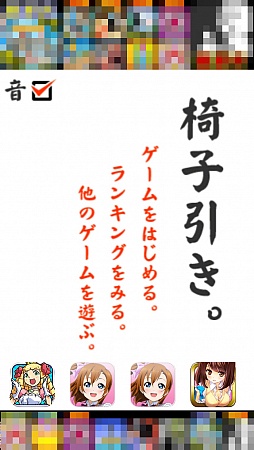 音
椅子引き。
ゲームをはじめる。
ランキングをみる。
他のゲームを遊ぶ。